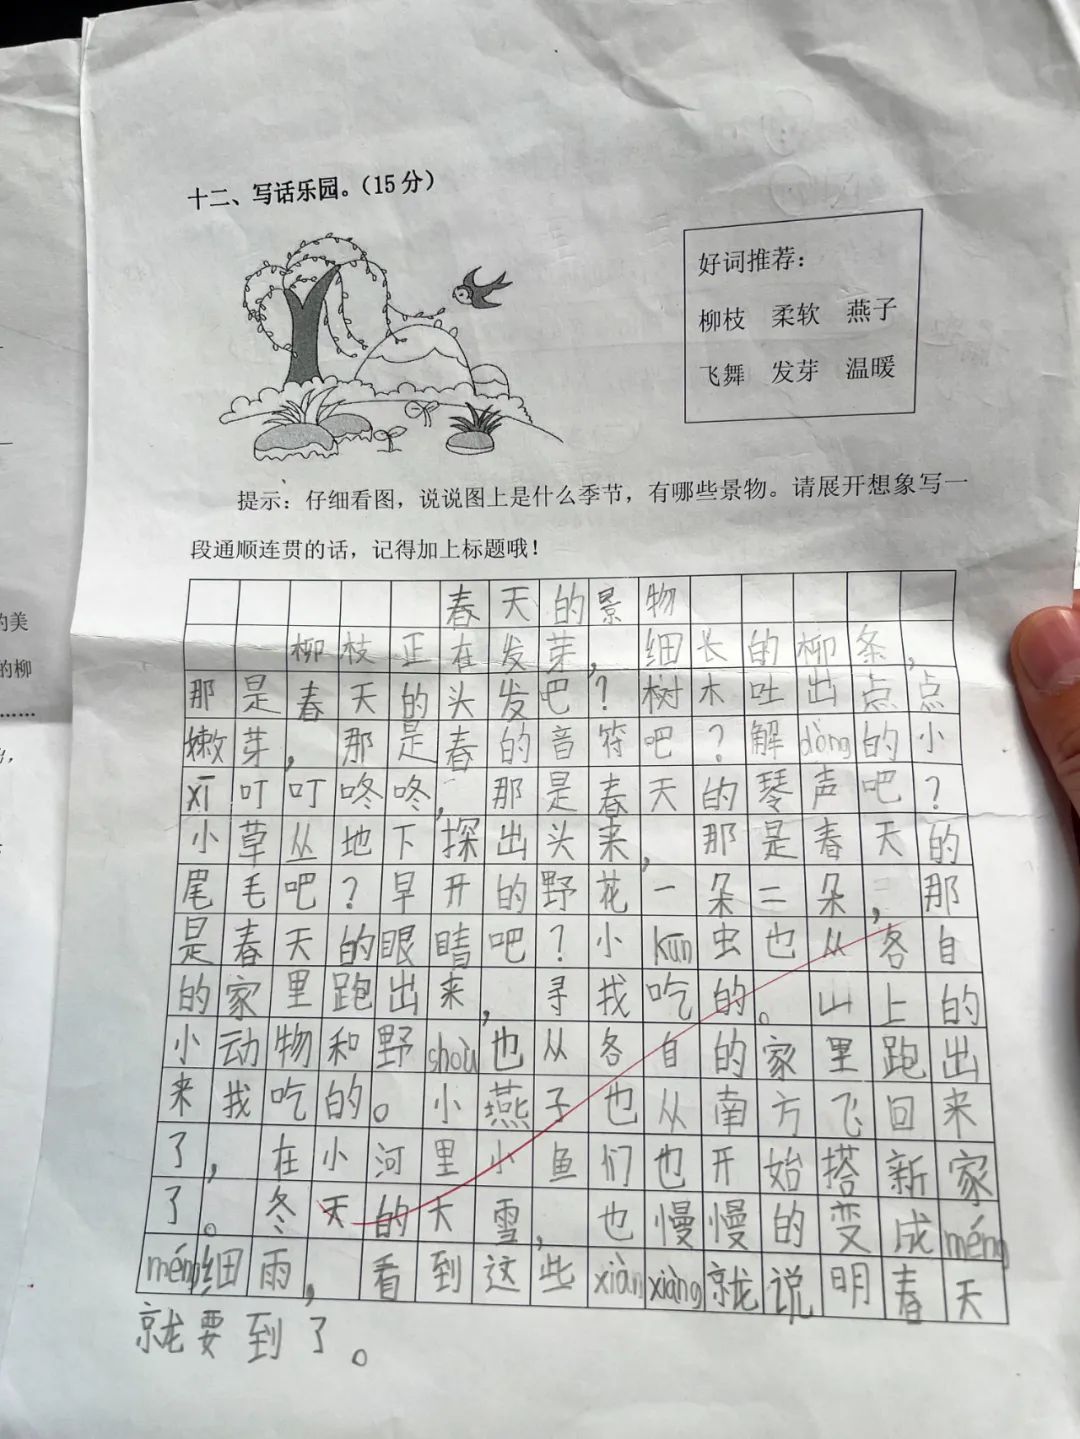 十二、写话乐园。（15分）
好词推荐：
柳枝 柔软 燕子
飞舞 发芽 温暖
提示：仔细看图，说说图上是什么季节，有哪些景物。请展开想象写一
段通顺连贯的话，记得加上标题哦！
春天的景物
柳枝正在发芽，细长的柳条，
那是春天的头发吧？树木吐出点点
嫩芽，那是春的音符吧？解dòng的小
xī叮叮咚咚，那是春天的琴声吧？
小草丛地下探出头来，那是春天的
尾毛吧？早开的野花一朵二朵，那
是春天的眼睛吧？小kūn虫也从各自
的家里跑出来，寻找吃的。山上的
小动物和野shòu也从各自的家里跑出
来找吃的。小燕子也从南方飞回来
了，在小河里小鱼们也开始搭新家
了。冬天的大雪，也慢慢的变成méng
méng细雨，看到这些xiàn xiàng就说明春天
就要到了。
的美
的柳
……